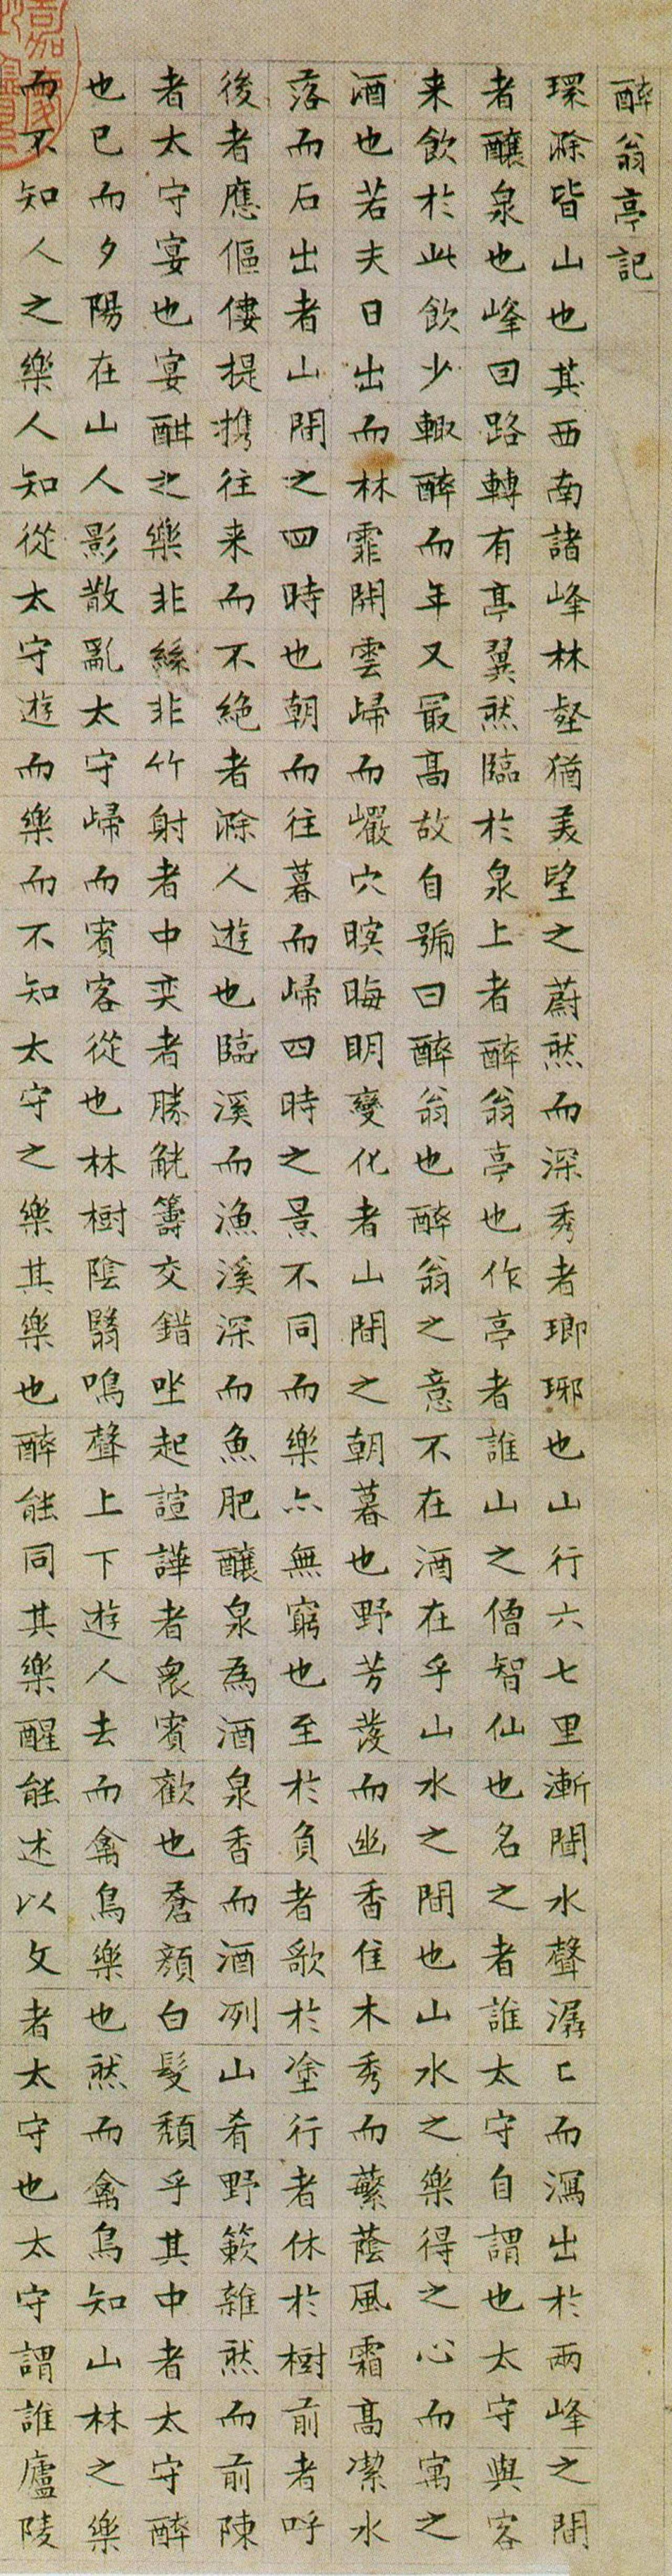 醉翁亭記
環滁皆山也其西南諸峰林壑猶美望之蔚然而深秀者瑯琊也山行六七里漸聞水聲潺〻而瀉出於兩峰之間
者釀泉也峰回路轉有亭翼然臨於泉上者醉翁亭也作亭者誰山之僧智仙也名之者誰太守自謂也太守與客
来飲於此飲少輙醉而年又最高故自號曰醉翁也醉翁之意不在酒在乎山水之間也山水之樂得之心而寓之
酒也若夫日出而林霏開雲歸而巖穴暝晦明變化者山間之朝暮也野芳發而幽香佳木秀而蘩蔭風霜高潔水
落而石出者山間之四時也朝而往暮而歸四時之景不同而樂亦無窮也至於負者歌於塗行者休於樹前者呼
後者應傴僂提携往来而不絶者滁人遊也臨溪而漁溪深而魚肥釀泉為酒泉香而酒冽山肴野簌雜然而前陳
者太守宴也宴酣之樂非絲非竹射者中奕者勝觥籌交錯坐起諠譁者衆賓歡也蒼顔白髮頽乎其中者太守醉
也已而夕陽在山人影散亂太守歸而賓客從也林樹陰翳鳴聲上下遊人去而禽鳥樂也然而禽鳥知山林之樂
而不知人之樂人知從太守遊而樂而不知太守之樂其樂也醉能同其樂醒能述以文者太守也太守謂誰廬陵